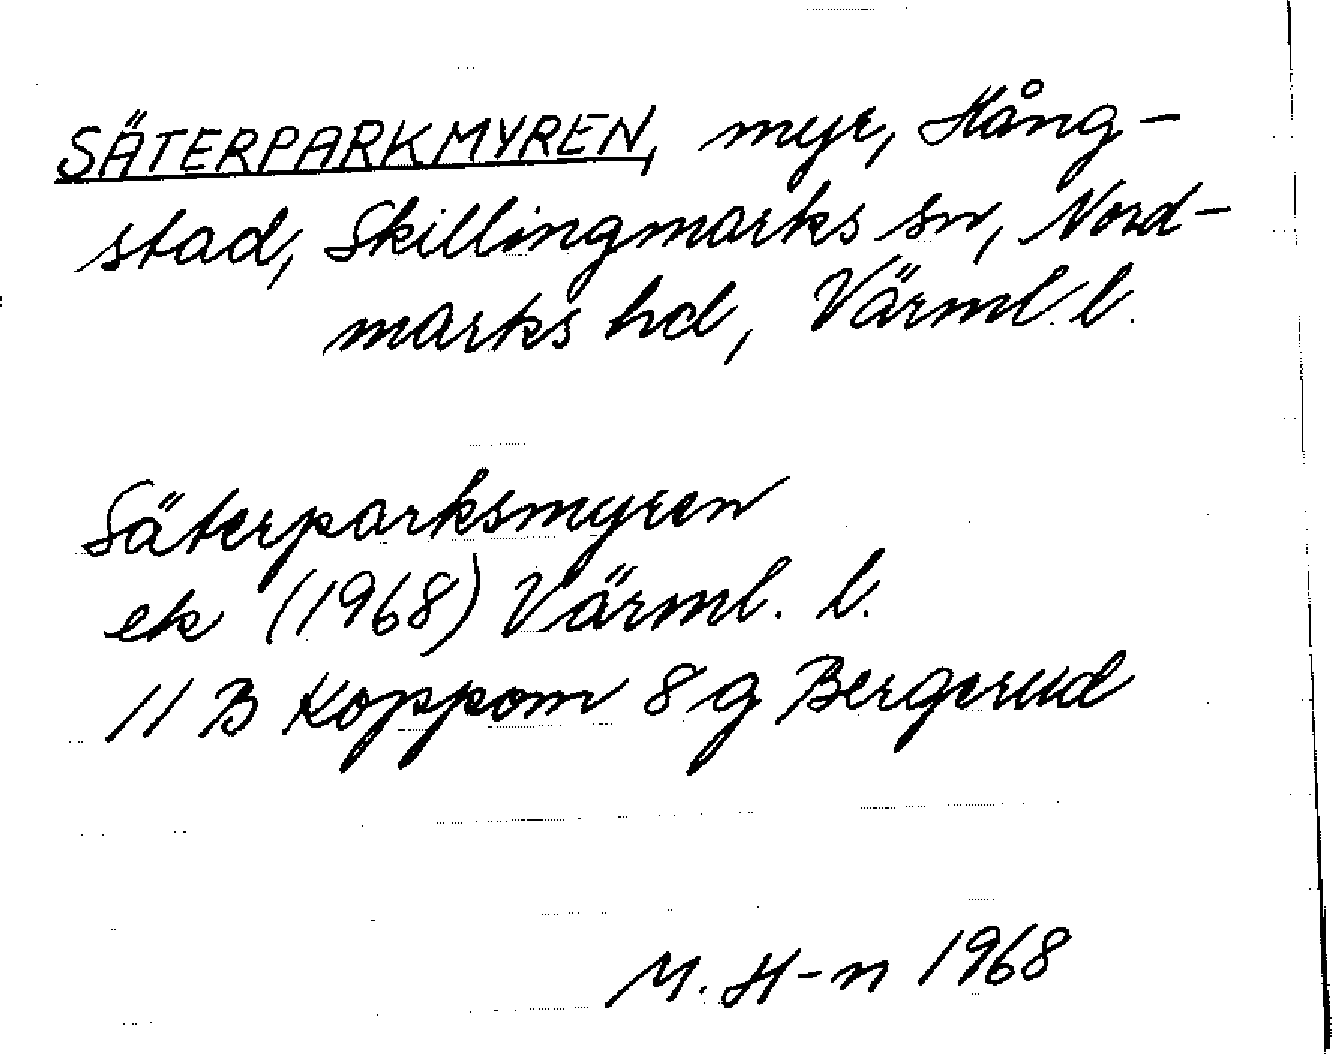 SÄTERPARKMYREN, myr, Hång-
stad, Skillingmarks sn, Nord-
marks hd, Värml. l.
Säterparksmyren
ek (1968) Värml. l.
11 B Koppom 8 g Bergerud
M. H-n 1968